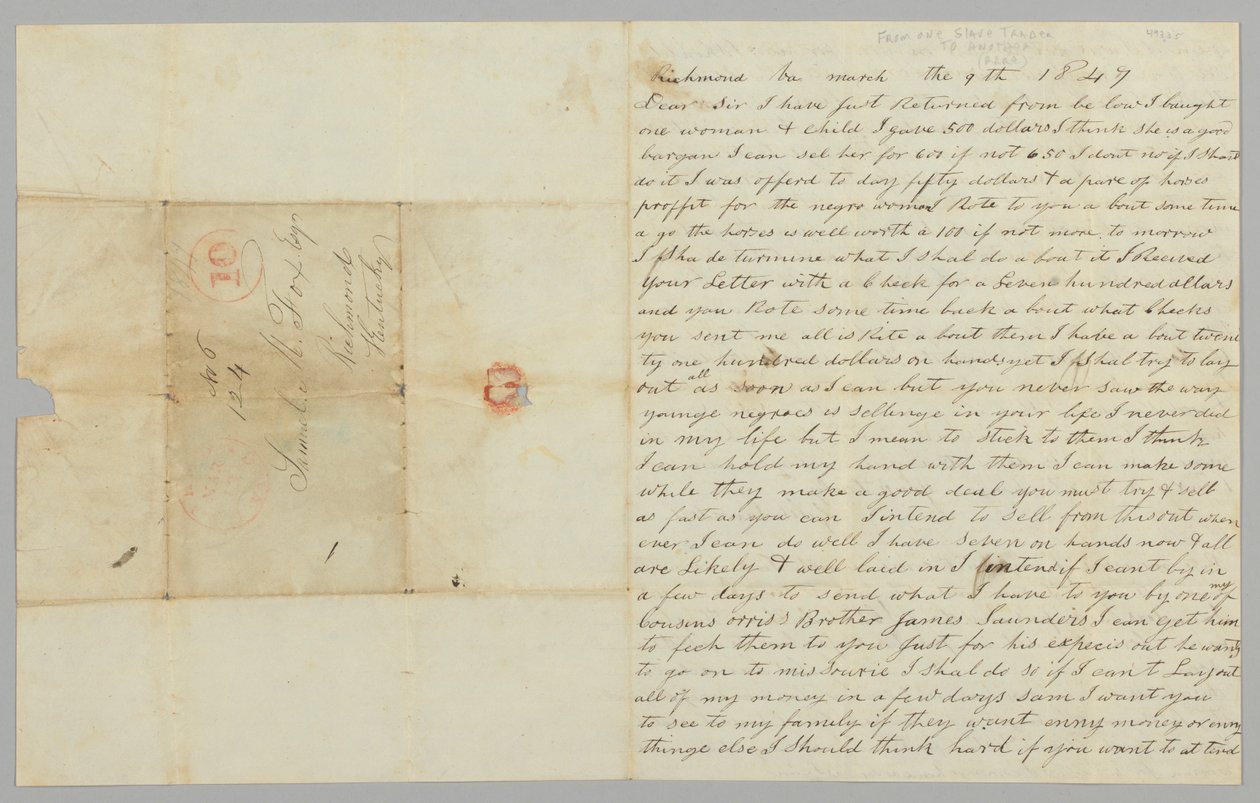 FROM ONE SLAVE TRADER
TO ANOTHER
(RARE)
Richmond Va march the 9 th 1849
Dear Sir I have Just Returned from be low I baught
one woman & child I gave 500 dollars I think she is a good
bargan I can sel her for 600 if not 650 I dont no if I shal
do it I was offerd to day fifty dollars & a pare of horses
proffit for the negro woman I Rote to you a bout some time
a go the horses is well worth a 100 if not more to morrow
I Shal de turmine what I shal do a bout it I Receved
your Letter with a Check for a Seven hundred dllars
and you Rote some time back a bout what Checks
you sent me all is Rite a bout them I have a bout twen
ty one hundred dollars on hands yet I Shal try to lay
out all as soon as I can but you never saw the way
younge negroes is sellinge in your life I never did
in my life but I mean to stick to them I think
I can hold my hand with them I can make some
while they make a good deal you must try & sell
as fast as you can I intend to sell from this out when
ever I can do well I have seven on hands now & all
are Likely & well laid in I intend if I cant by in
a few days to send what I have to you by one of my
Cousens orris's Brother James Saunders I can get him
to fech them to you Just for his expecis out he wants
to go on to missourie I shal do so if I can't Lay out
all of my money in a few days Sam I want you
to see to my family if they want enny money or enny
thinge else I should think hard if you want to at tend
10
No 6
124
Samuel M. Fox Esqr
Richmond
Kentucky